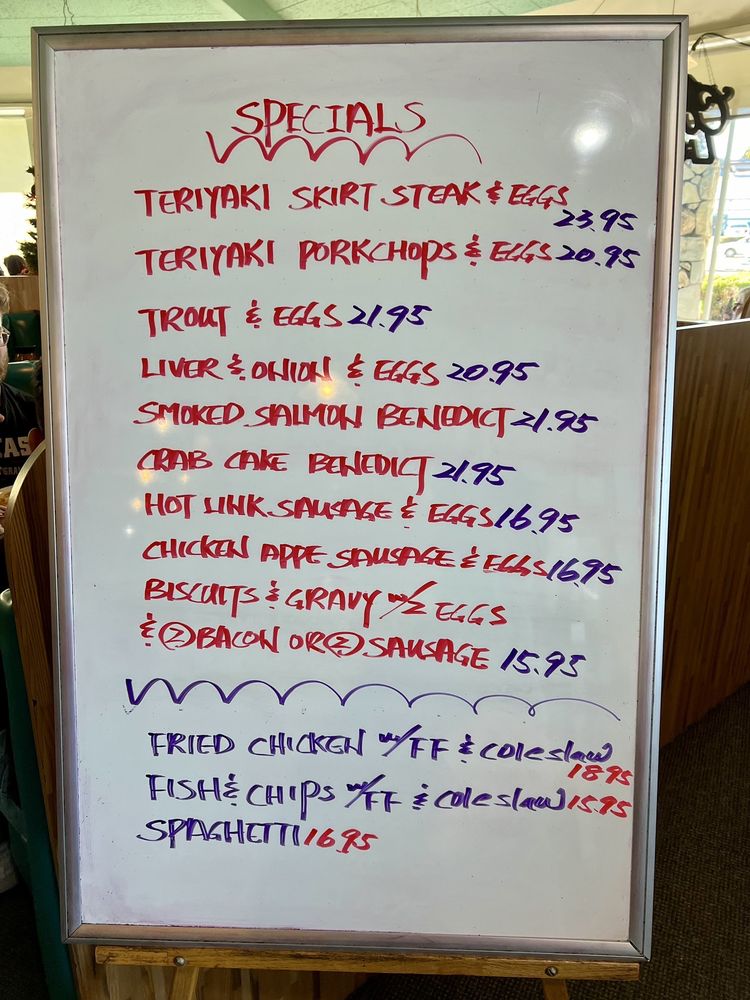 SPECIALS
TERIYAKI SKIRT STEAK & EGGS
23.95
TERIYAKI PORKCHOPS & EGGS 20.95
TROUT & EGGS 21.95
LIVER & ONION & EGGS 20.95
SMOKED SALMON BENEDICT 21.95
CRAB CAKE BENEDICT 21.95
HOT LINK SAUSAGE & EGGS 16.95
CHICKEN APPE SAUSAGE & EGGS 16.95
BISCUITS & GRAVY w/2 EGGS
& ② BACON OR ② SAUSAGE 15.95
FRIED CHICKEN w/FF & coleslaw
18.95
FISH & CHIPS w/FF & coleslaw 15.95
SPAGHETTI 16.95